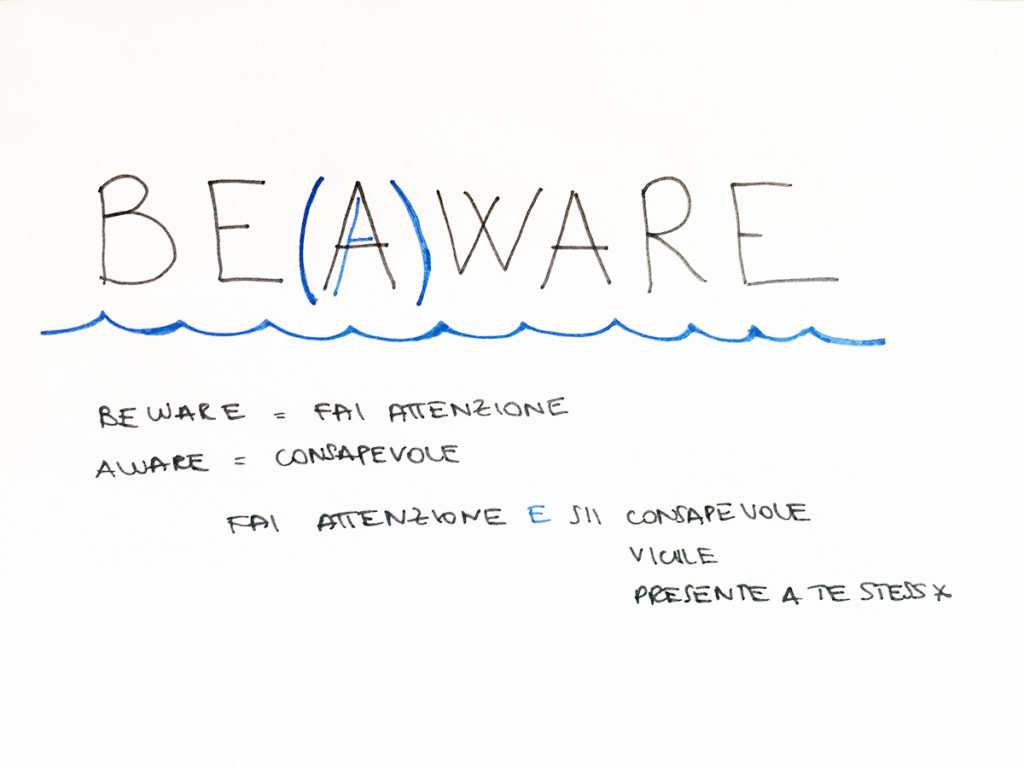 BE(A)WARE
BEWARE = FAI ATTENZIONE
AWARE = CONSAPEVOLE
FAI ATTENZIONE E SII CONSAPEVOLE
VIGILE
PRESENTE A TE STESSX